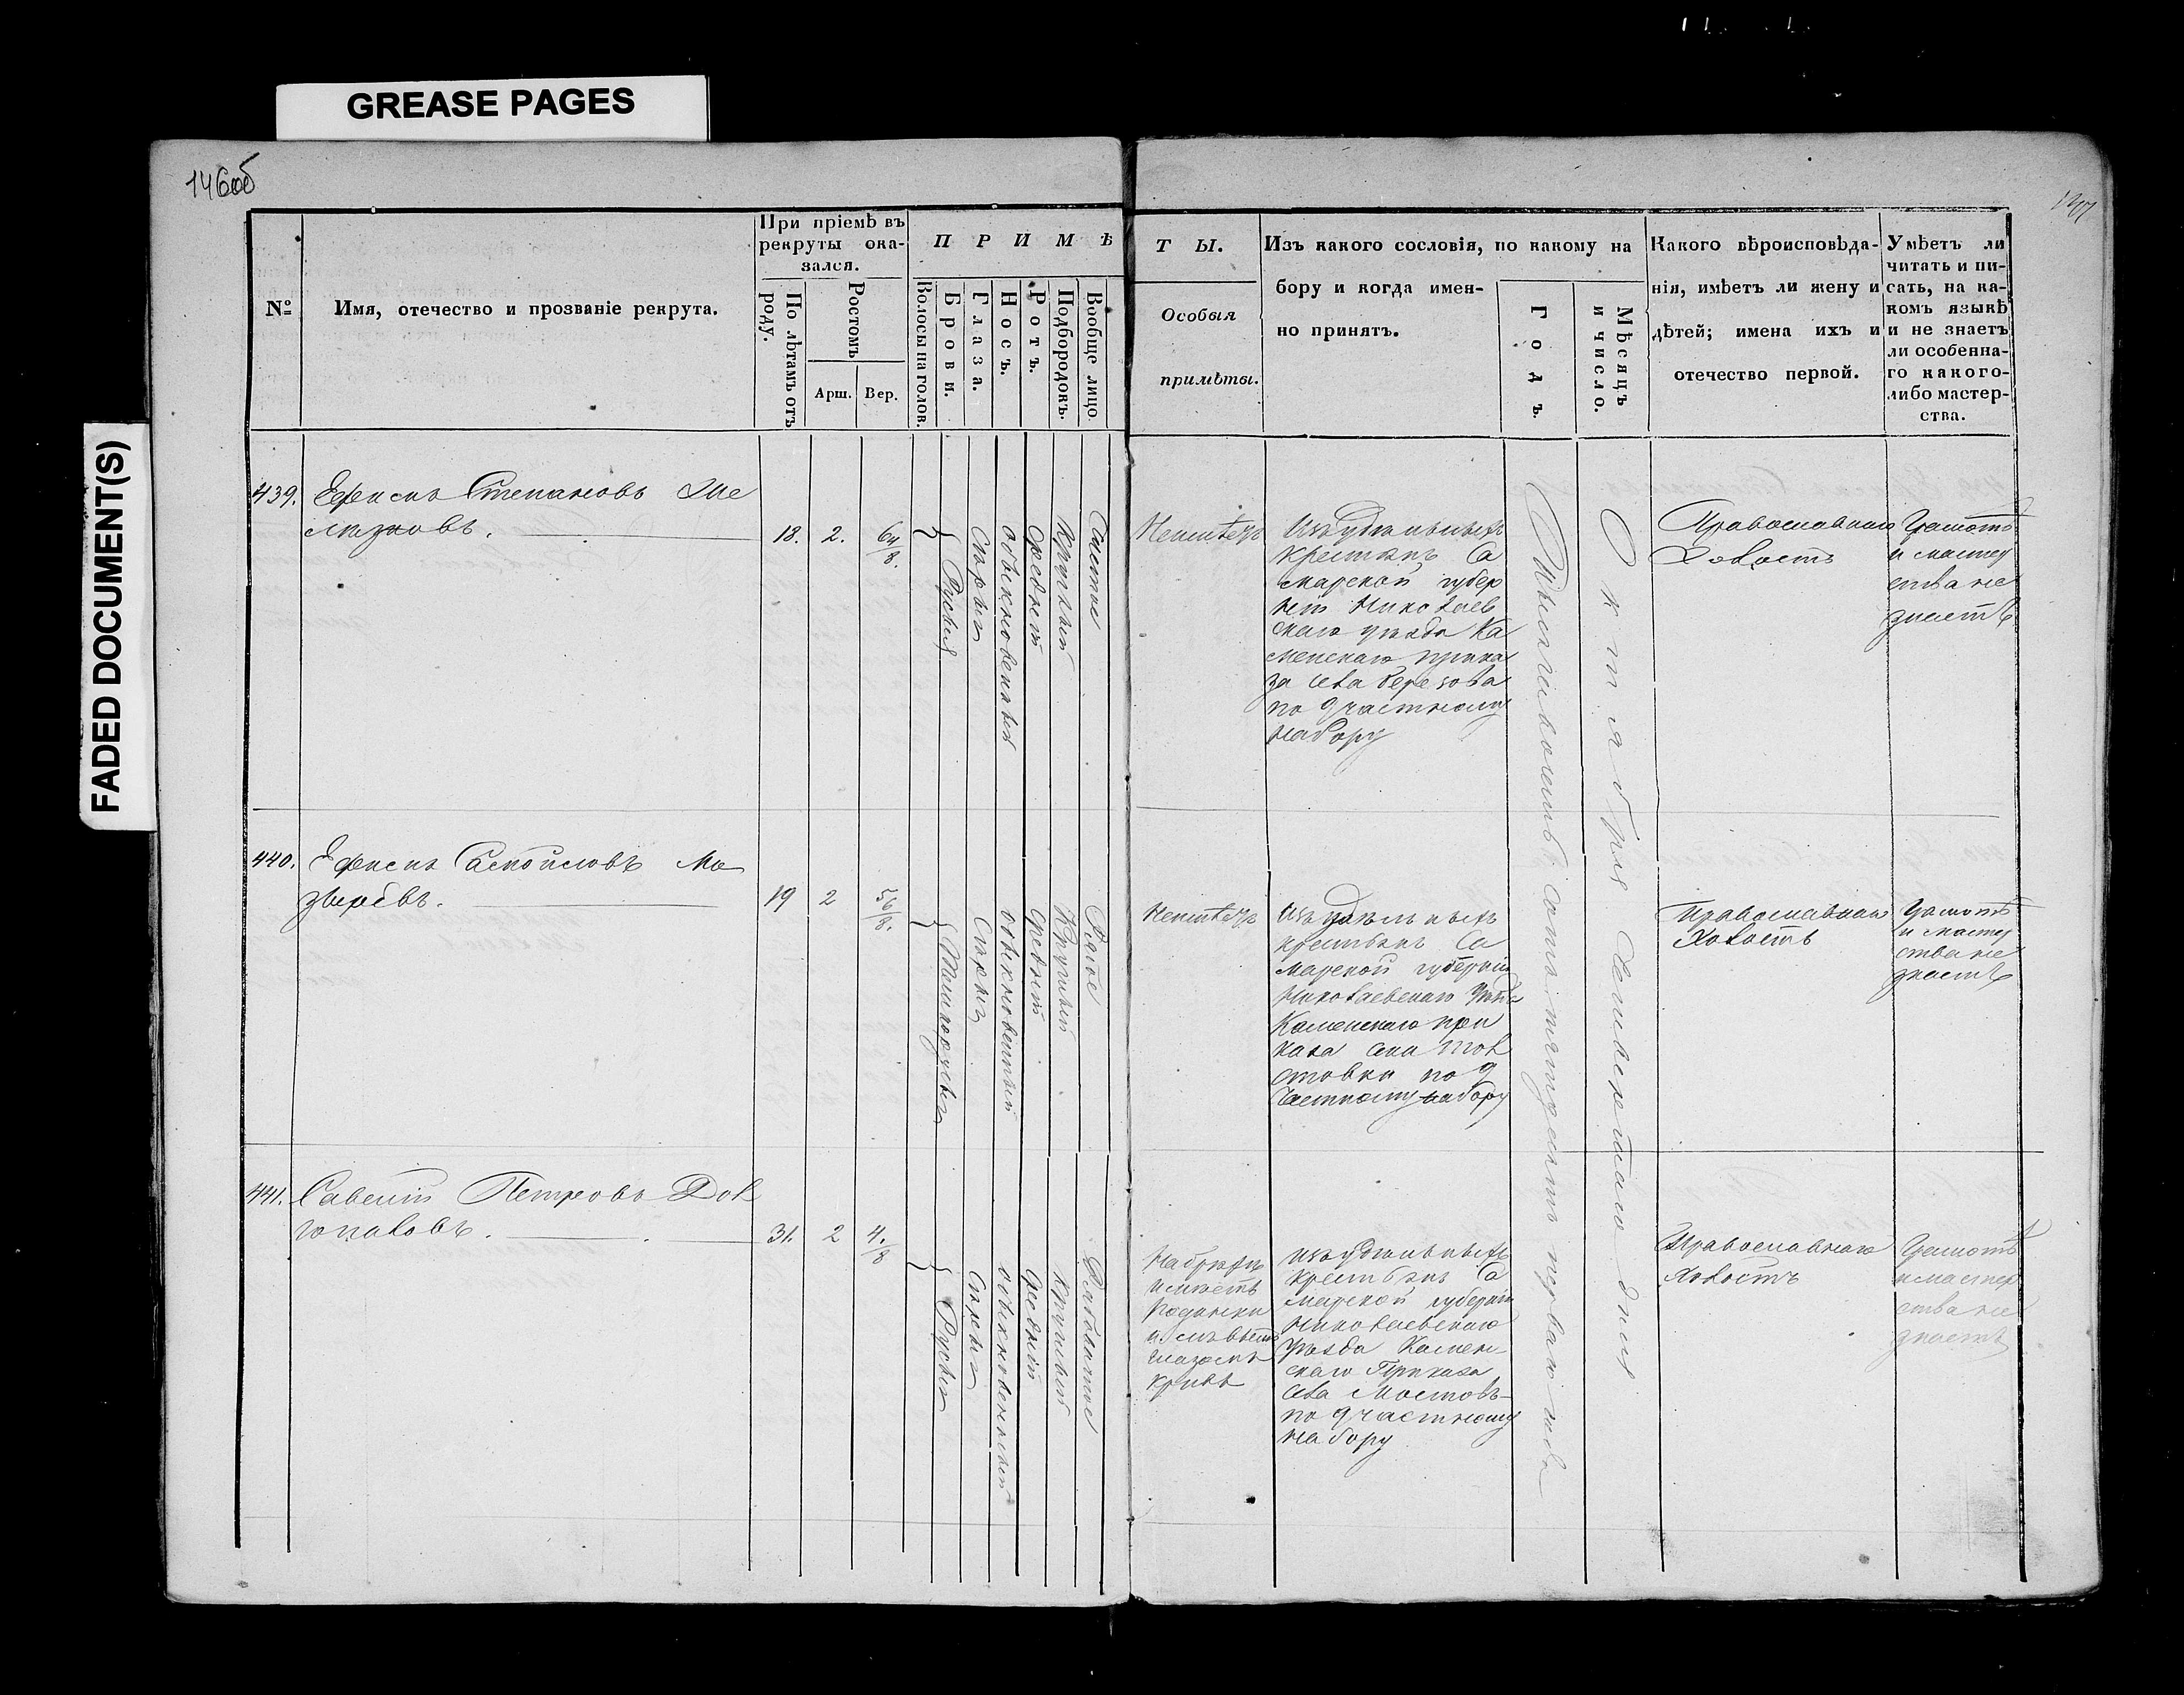 GREASE PAGES
FADED DOCUMENT(S)
146об
147
№
Имя, отечество и прозваніе рекрута.
При пріемѣ въ
рекруты ока-
зался.
По лѣтамъ отъ
роду.
Ростомъ
Арш.
Вер.
ПРИМѢ
Волосы на голов.
Брови.
Глаза.
Носъ.
Ротъ.
Подбородокъ.
Вообще лицо
ТЫ.
Особыя
примѣты.
Изъ какого сословія, по какому на
бору и когда имен-
но принятъ.
Годъ.
Мѣсяцъ
и число.
Какого вѣроисповѣда-
нія, имѣетъ ли жену и
дѣтей; имена ихъ и
отечество первой.
Умѣетъ ли
читать и пи-
сать, на ка-
комъ языкѣ
и не знаетъ
ли особенна-
го какого-
либо мастер-
ства.
439.
Ефимъ Степановъ
18.
2.
6 4/8.
Русыя
Сѣрыя
обыкновенный
средній
Круглый
Чистое
Неимѣетъ
Изъ удѣльныхъ
крестьянъ Са
марской губер
ніи Николаев
скаго уѣзда Ка
менскаго прика
за села березова
по 9 частному
набору
Тысяча восемьсотъ пятьдесятъ перваго года
Октября двадцать дня
Православнаго
Холостъ
Грамотѣ
и мастер
ства не
знаетъ
440.
Ефимъ
19
2
5 6/8.
Темнорусыя
Сѣрыя
обыкновенный
средній
Круглый
Рябое
Неимѣетъ
Изъ удѣльныхъ
крестьянъ Са
марской губерніи
Николаевскаго Уѣзда
Каменскаго при
каза села Тол
стовки по 9
частному набору
Православнаго
Холостъ
Грамотѣ
и мастер
ства не
знаетъ
441.
Савелій Петровъ Дол
гополовъ.
31.
2
4./8
Русыя
Сѣрыя
обыкновенный
средній
круглый
Рябоватое
На брюхѣ
имѣетъ
Родинки
и лѣвымъ
глазомъ
кривъ
изъ удѣльныхъ
крестьянъ Са
марской губерніи
Николаевскаго
Уѣзда Камен
скаго Приказа
села Мостовъ
по 9 частному
набору
Православнаго
Холостъ
Грамотѣ
и мастер
ства не
знаетъ